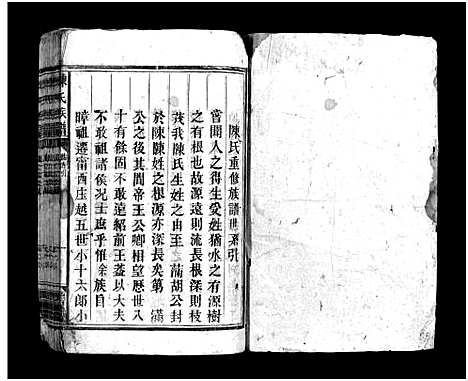 陳氏重修族譜世系引
嘗聞人之得生受姓猶水之有源樹
之有根也故源遠則流長根深則枝
茂我陳氏生姓之由至滿胡公封
於陳陳姓之根源亦深長矣第滿
公之後其間帝王公卿相望歷世八
十有餘固不敢遠紹前王蓋以大夫
不敢祖諸侯況士庶乎惟余族自
暐祖遷甯西庄越五世小十太郎小
陳氏族譜